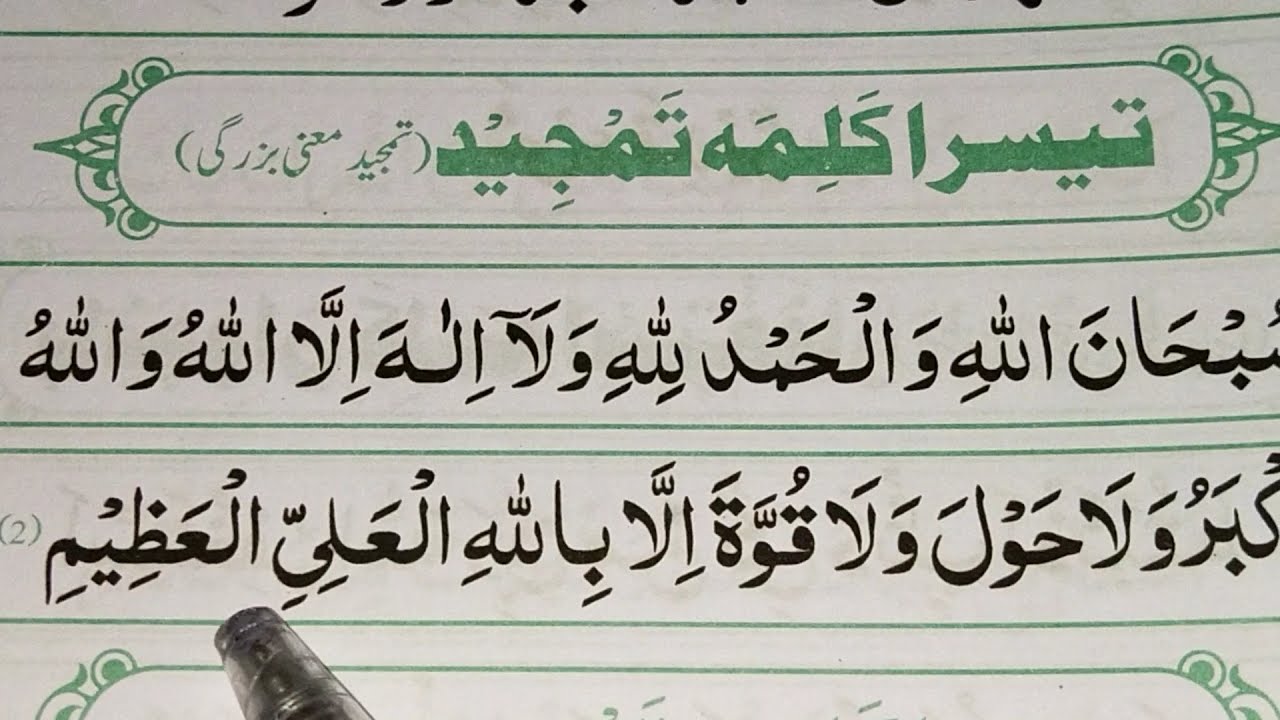 تیسرا کَلِمَہ تَمْجِیْد (تمجید معنی بزرگی)
سُبْحَانَ اللهِ وَالْحَمْدُ لِلّٰهِ وَلَآ اِلٰـهَ اِلَّا اللهُ وَاللهُ
کْبَرُ وَلَا حَوْلَ وَلَا قُوَّةَ اِلَّا بِاللهِ الْعَلِيِّ الْعَظِيْمِ (2)